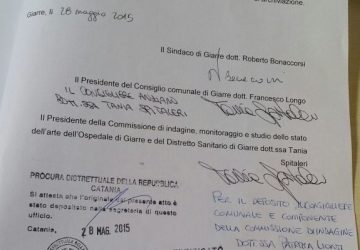 di archiviazione.
Giarre, lì 28 maggio 2015
Il Sindaco di Giarre dott. Roberto Bonaccorsi
Il Presidente del Consiglio comunale di Giarre dott. Francesco Longo
IL CONSIGLIERE ANZIANO
DOTT. SSA TANIA SPITALERI
Il Presidente della Commissione di indagine, monitoraggio e studio dello stato
dell'arte dell'Ospedale di Giarre e del Distretto Sanitario di Giarre dott.ssa Tania
Spitaleri
PROCURA DISTRETTUALE DELLA REPUBBLICA
CATANIA
Si attesta che l'originale del presente atto è
stato depositato nella segreteria di questo
ufficio.
Catania, 28 MAG. 2015
PER IL DEPOSITO IL CONSIGLIERE
COMUNALE E COMPONENTE
DELLA COMMISSIONE D'INDAGINE
DOTT. SSA